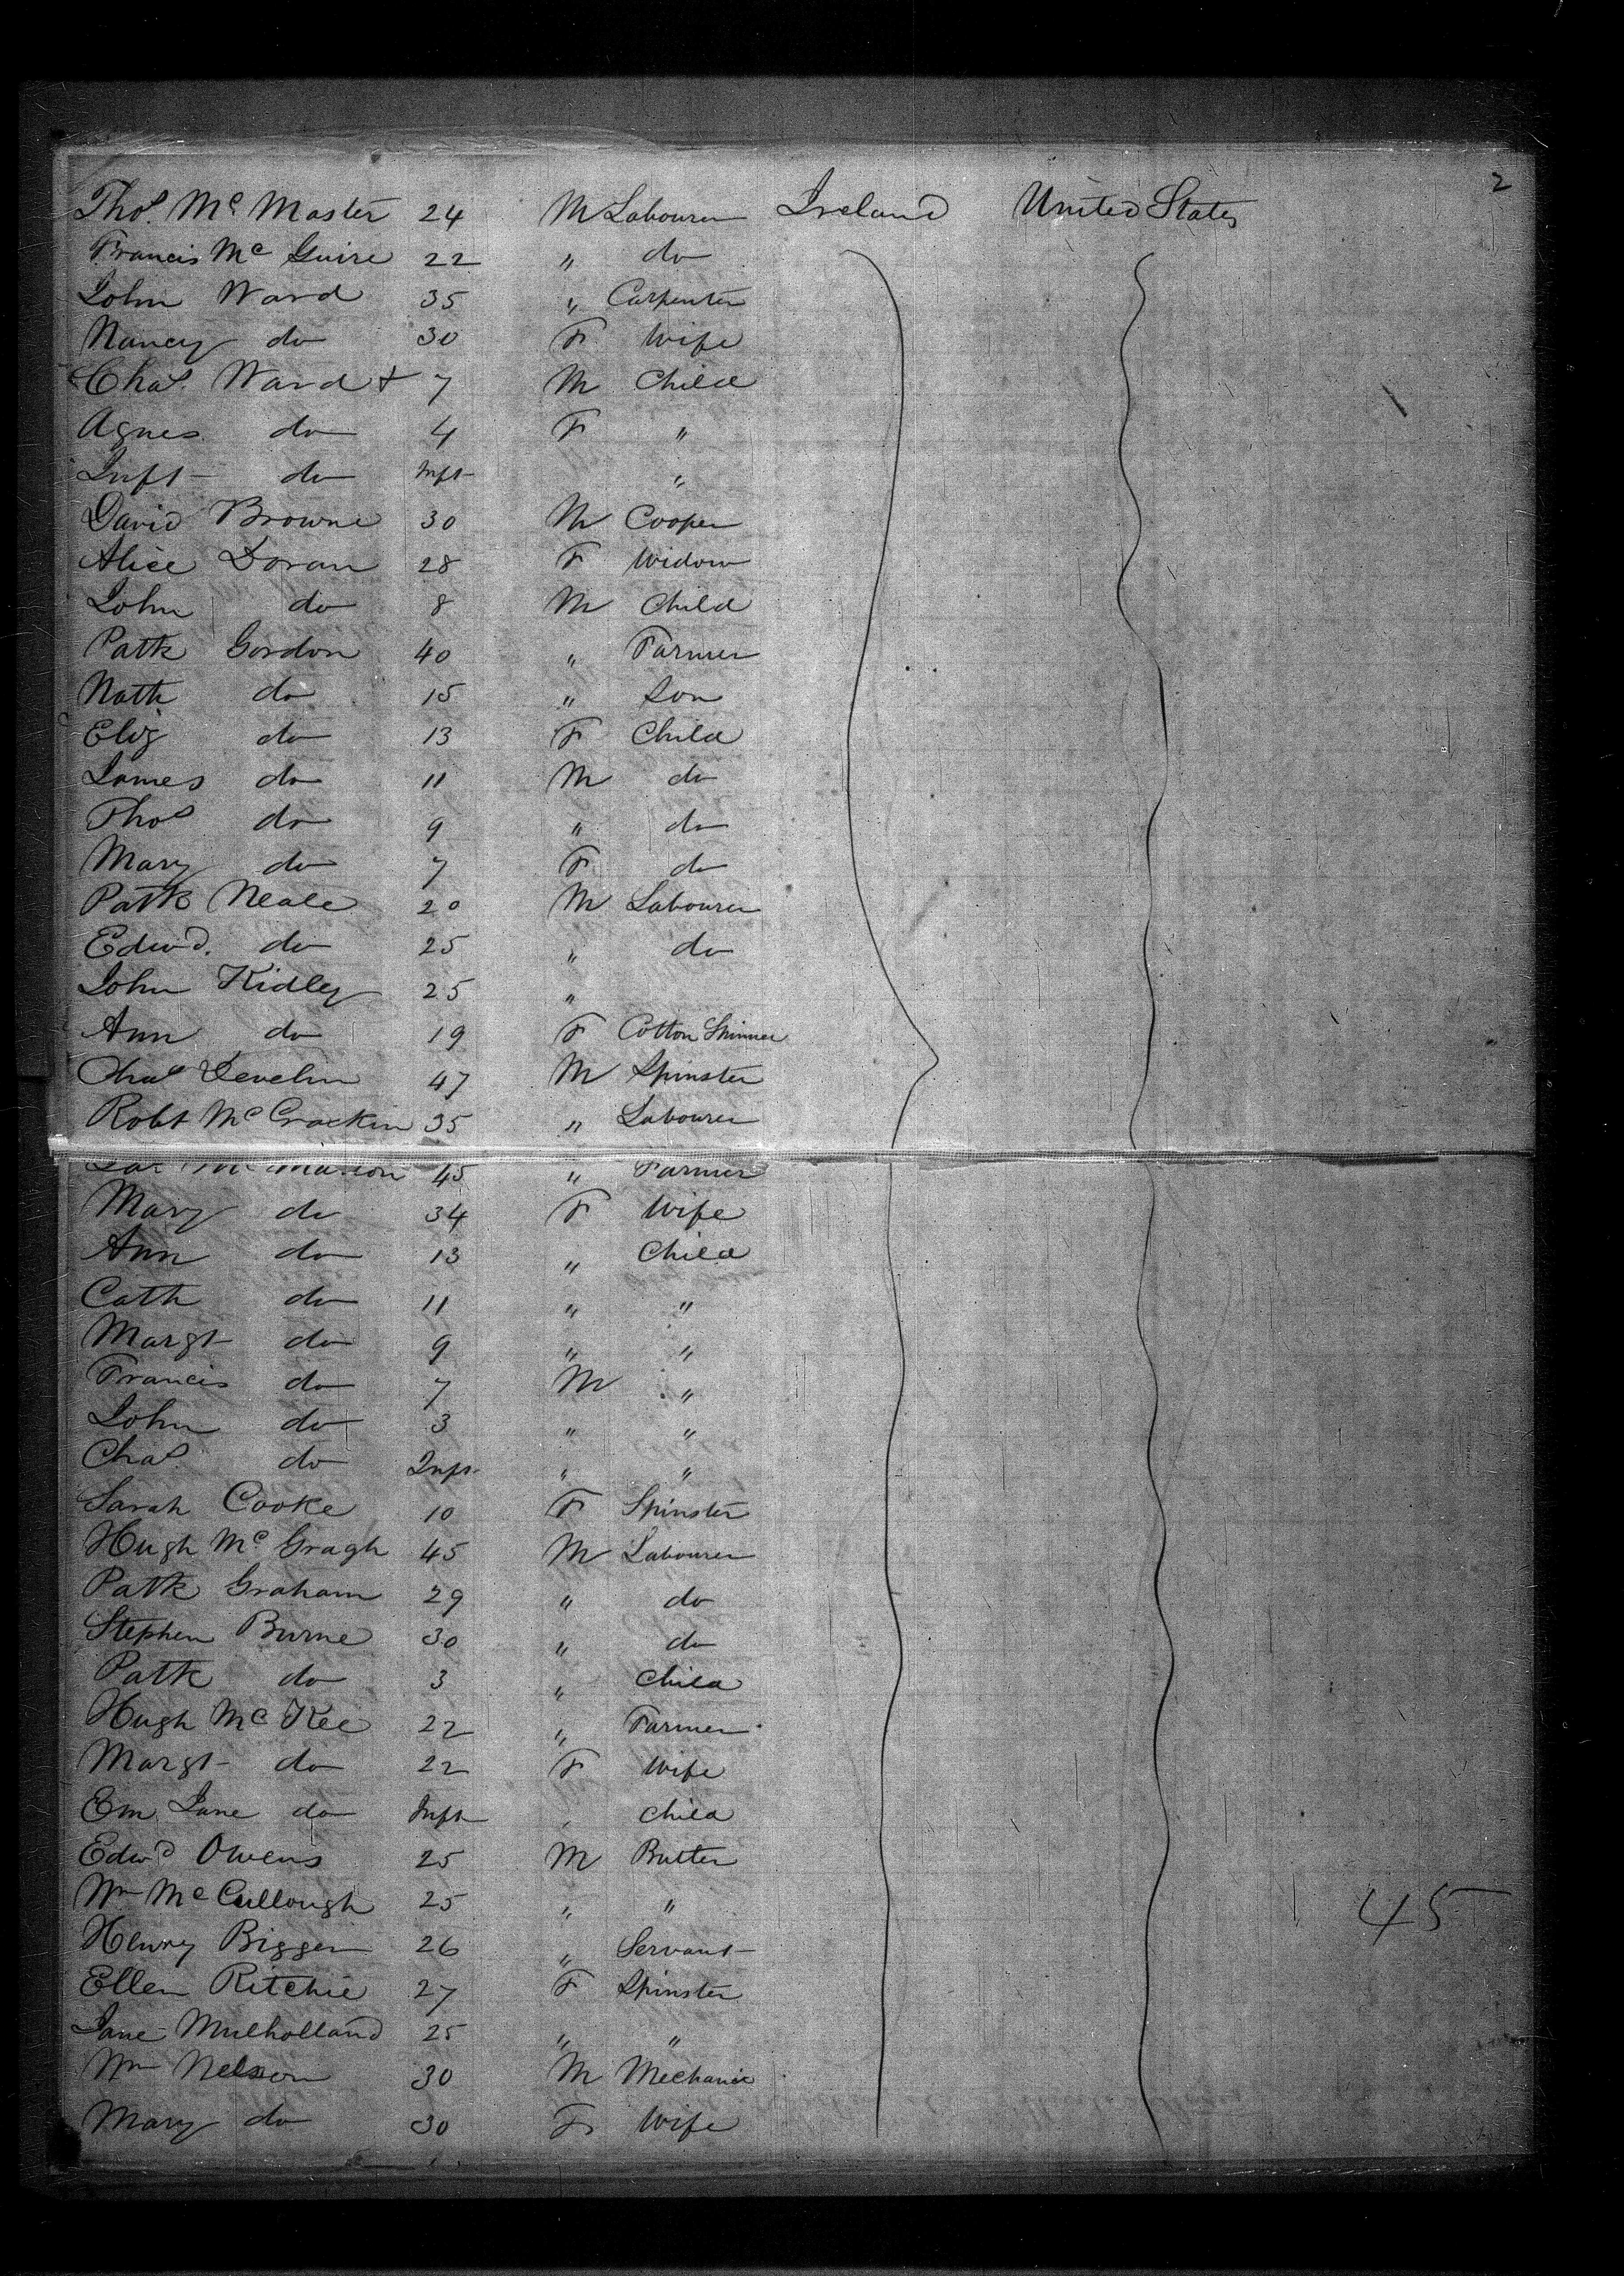 2
Thos. Mc Master 24 M Labourer Ireland United States
Francis Mc Guire 22 " do
John Ward 35 " Carpenter
Nancy do 30 F Wife
Chas. Ward + 7 M Child
Agnes do 4 F "
Inft do Inft "
David Browne 30 M Cooper
Alice Doran 28 F Widow
John do 8 M Child
Patk Gordon 40 " Farmer
Nath do 15 " Son
Eliz do 13 F Child
James do 11 M do
Thos do 9 " do
Mary do 7 F do
Patk Neale 20 M Labourer
Edwd. do 25 " do
John Kidley 25 "
Ann do 19 F Cotton Spinner
Chas Develin 47 M Spinster
Robt Mc Crackin 35 " Labourer
45 " Farmer
Mary do 34 F Wife
Ann do 13 " Child
Cath do 11 " "
Margt do 9 " "
Francis do 7 M "
John do 3 " "
Chas do Inft " "
Sarah Cooke 10 F Spinster
Hugh Mc Gragh 45 M Labourer
Patk Graham 29 " do
Stephen Burne 30 " do
Patk do 3 " Child
Hugh Mc Kee 22 " Farmer
Margt do 22 F Wife
Em Jane do Inft " Child
Edwd Owens 25 M Butler
Wm Mc Cullough 25 " "
45
Henry Bigger 26 " Servant
Ellen Ritchie 27 F Spinster
Jane Mulholland 25 " "
Wm Nelson 30 M Mechanic
Mary do 30 F Wife